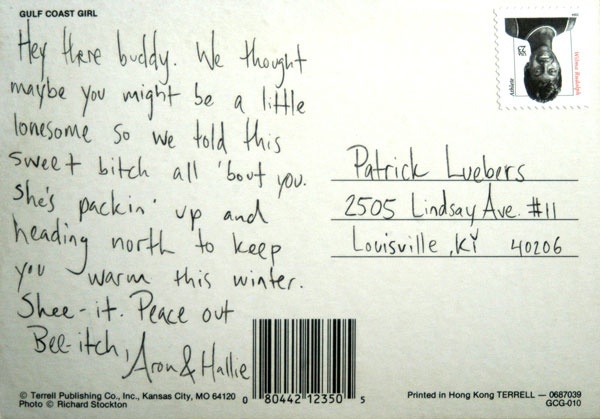 GULF COAST GIRL
Hey there buddy. We thought
maybe you might be a little
lonesome so we told this
sweet bitch all 'bout you.
She's packin' up and
heading north to keep
you warm this winter.
Shee-it. Peace out
Bee-itch,
Aron & Hallie
Wilma Rudolph
23
Athlete
Patrick Luebers
2505 Lindsay Ave. #11
Louisville, KY 40206
© Terrell Publishing Co., Inc., Kansas City, MO 64120
Photo © Richard Stockton
0 80442 12350 5
Printed in Hong Kong TERRELL — 0687039
GCG-010